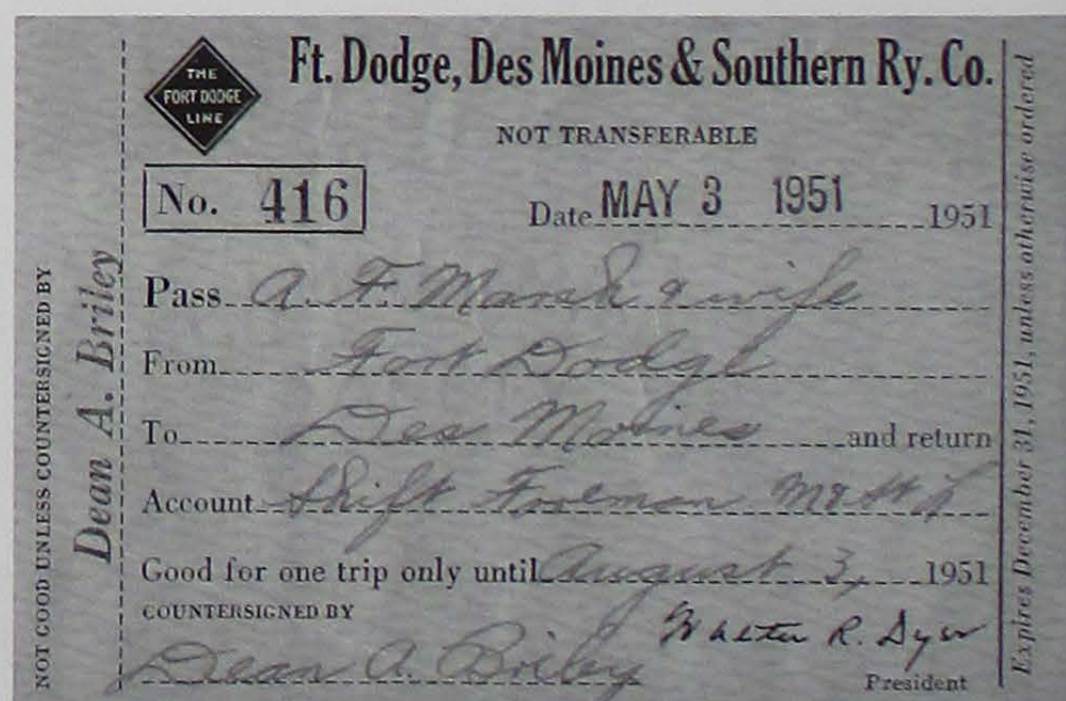 NOT GOOD UNLESS COUNTERSIGNED BY
Dean A. Briley
THE
FORT DODGE
LINE
Ft. Dodge, Des Moines & Southern Ry. Co.
NOT TRANSFERABLE
No. 416
Date MAY 3 1951 1951
Pass A. F. Marsh & wife
From Fort Dodge
To Des Moines and return
Account Shift Foreman
Good for one trip only until August 3, 1951
COUNTERSIGNED BY
Dean A. Briley
Walter R. Dyer
President
Expires December 31, 1951, unless otherwise ordered